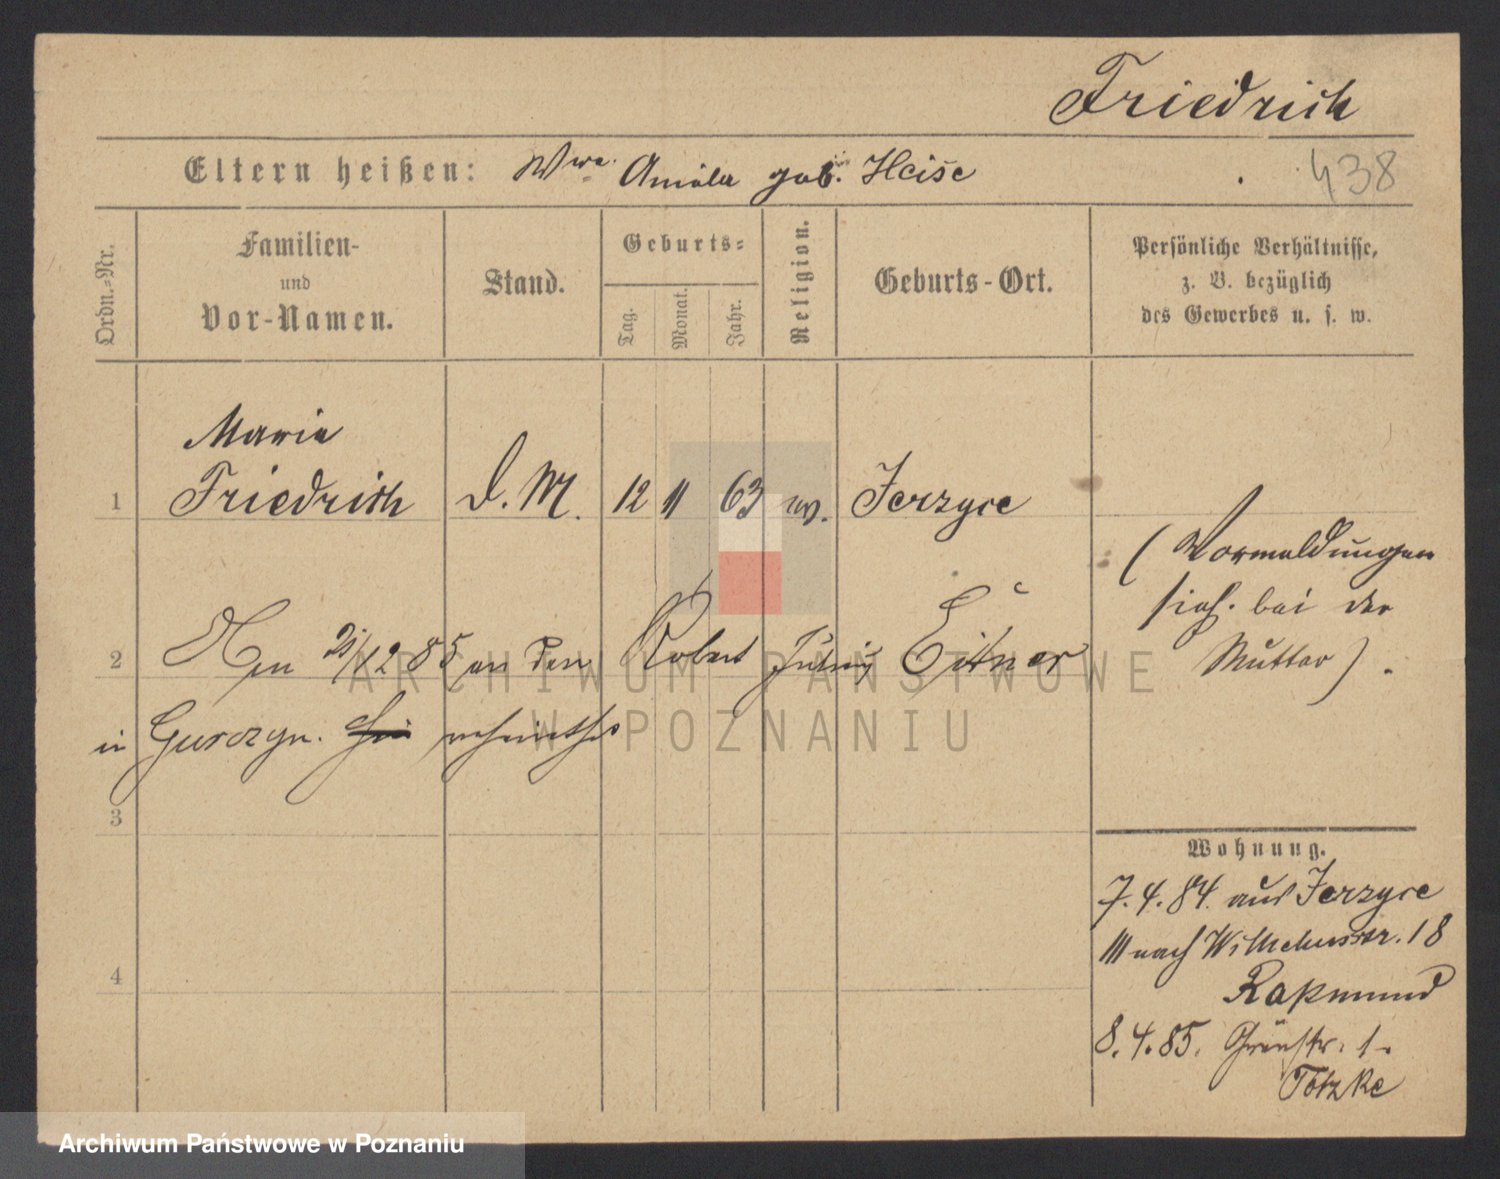 Friedrich
438
Eltern heißen: Wwe. Amalia geb. Heise
Ordn.-Nr.
Familien-
und
Vor-Namen.
Stand.
Geburts-
Tag.
Monat.
Jahr.
Religion.
Geburts-Ort.
Persönliche Verhältnisse,
z. B. bezüglich
des Gewerbes u. s. w.
Maria
1 Friedrich D. M. 12 11 63 ev. Jerzyce
(Vormeldungen
sieh. bei der
Mutter).
2 21/12 85 an den Robert Julius Eitner
in Gurczyn.
3
4
Wohnung.
7.4.84. aus Jerzyce
nach Wilhelmsstr. 18
Rapmund
8.4.85. Grünstr. 1.
Totzke
ARCHIWUM PAŃSTWOWE
W POZNANIU
Archiwum Państwowe w Poznaniu